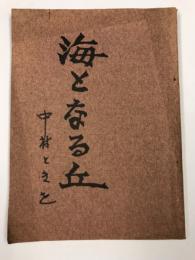 海となる丘
中村ときを